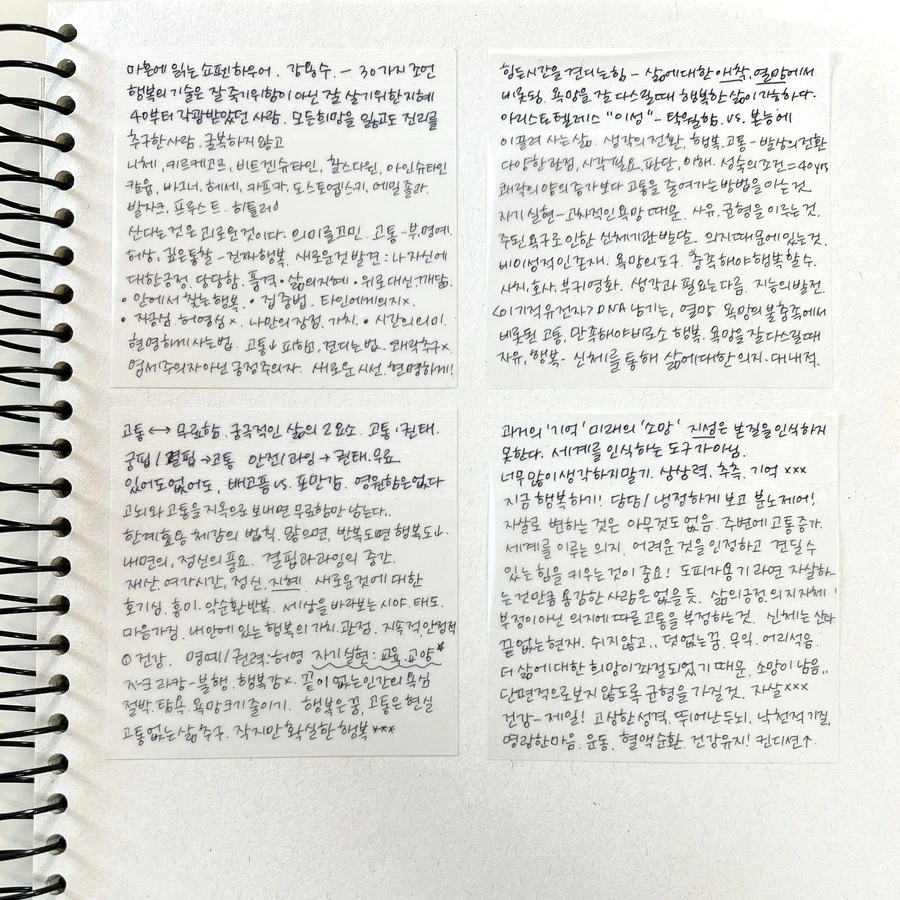 마흔에 읽는 쇼펜하우어. 강용수. - 30가지 조언
행복의 기술은 잘 죽기위함이 아닌 잘 살기위한 지혜
40부터 각광받았던 사람. 모든희망을 잃고도 진리를
추구한사람. 굴복하지않고
니체, 키르케고르, 비트겐슈타인, 찰스다윈, 아인슈타인
칼융, 바그너, 헤세, 카프카, 도스토옙스키, 에밀졸라,
발자크, 프루스트. 히틀러
산다는것은 괴로운것이다. 의미를고민. 고통-부,명예,
허상. 깊은통찰-진짜행복. 새로운건발견: 나자신에
대한긍정. 당당함. 품격 • 삶의지혜 • 위로대신.깨달음.
• 안에서 찾는행복. • 집중법. 타인에게의지x.
• 자긍심. 허영심x. 나만의장점. 가치. • 시간의의미.
현명하게사는법. 고통↓ 피하고, 견디는법. 쾌락추구x.
염세주의자아닌 긍정주의자. 새로운 시선. 현명하게!
힘든시간을 견디는힘 - 삶에대한 애착, 열망에서
비롯됨. 욕망을 잘 다스릴때 행복한삶이가능하다.
아리스토텔레스 "이성" - 탁월함. vs. 본능에
이끌려 사는삶. 생각의전환, 행복.고통-발상의전환
다양한관점, 시각필요, 판단, 이해. 성숙의조건=40yrs
쾌락의양의증가보다 고통을 줄여가는방법을아는것.
자기실현-고차적인욕망 때문. 사유, 균형을 이루는것.
주된욕구로인한 신체기관발달. 의지때문에있는것.
비이성적인존재. 욕망의도구. 충족해야행복할수.
사치,호사. 부귀영화. 생각과 필요는다름. 지능의발전.
<이기적유전자> DNA남기는, 열망. 욕망의불충족에서
비롯된 고통, 만족해야비로소 행복. 욕망을잘다스릴때
자유, 행복 - 신체를통해 삶에대한의지. 대내적.
고통 ↔ 무료함. 궁극적인 삶의 2요소. 고통·권태.
궁핍/결핍→고통 안전/과잉→권태.무료
있어도없어도, 배고픔vs.포만감. 영원함은없다
고뇌와고통을지옥으로 보내면 무료함만남는다..
한계효용 체감의 법칙. 많으면, 반복되면 행복도↓.
내면의, 정신의풍요. 결핍과과잉의 중간.
재산.여가시간, 정신, 지혜. 새로운것에 대한
호기심, 흥미. 악순환반복. 세상을바라보는시야.태도.
마음가짐. 내안에 있는행복의가치.관점. 지속적,안정적
① 건강. 명예/권력-허영 자기실현:교육.교양*
자크 라캉-불행. 행복감x. 끝이없는인간의욕심
절박.탐욕. 욕망크기줄이기. 행복은꿈, 고통은현실.
고통없는삶추구. 작지만 확실한 행복***
과거의 '기억' 미래의 '소망' 지성은 본질을인식하지
못한다. 세계를 인식하는 도구가아님.
너무많이생각하지말기. 상상력. 추측. 기억 xxx
지금 행복하기! 담담/냉정하게 보고 분노제어!
자살로 변하는 것은 아무것도없음. 주변에 고통증가.
세계를 이루는 의지. 어려운것을인정하고 견딜수
있는 힘을 키우는 것이 중요! 도피가용기라면 자살하
는것만큼 용감한 사람은 없을듯. 삶의긍정.의지자체!
부정이아닌 의지에 따르고통을 부정하는것. 신체는
끝없는현재. 쉬지않고.. 덧없는꿈. 무익. 어리석음.
더 삶에대한 희망이좌절되었기 때문. 소망이남음..
단편적으로보지않도록 균형을 가질것. 자살xxx
건강-제일! 고상한성격, 뛰어난두뇌, 낙천적기질,
명랑한마음. 운동. 혈액순환. 건강유지! 컨디션↑.